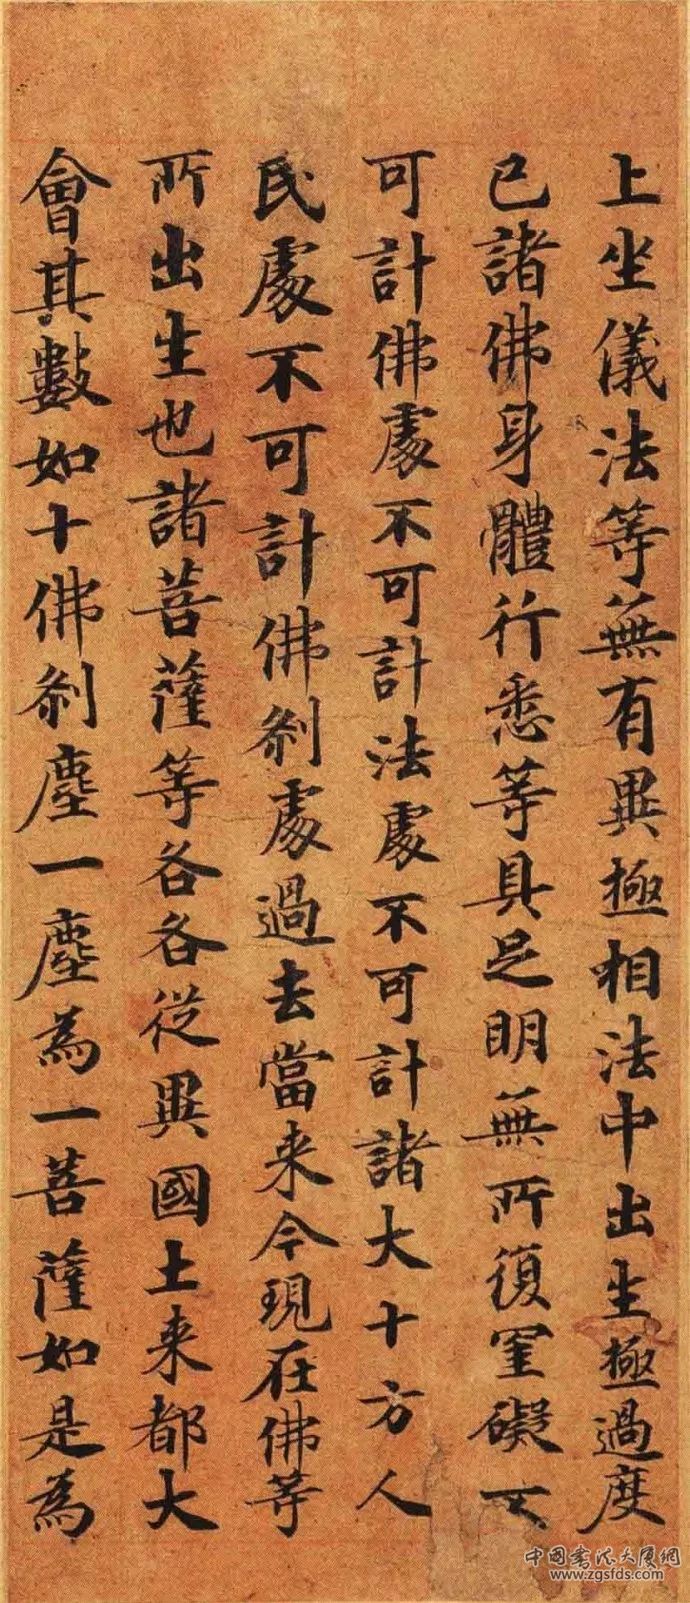 上坐儀法等無有異極相法中出生極過度
已諸佛身體行悉等具足明無所復罣礙不
可計佛處不可計法處不可計諸大十方人
民處不可計佛剎處過去當来今現在佛等
所出生也諸菩薩等各各從異國土来都大
會其數如十佛剎塵一塵為一菩薩如是為
中国书法大厦網
www.zgsfds.com